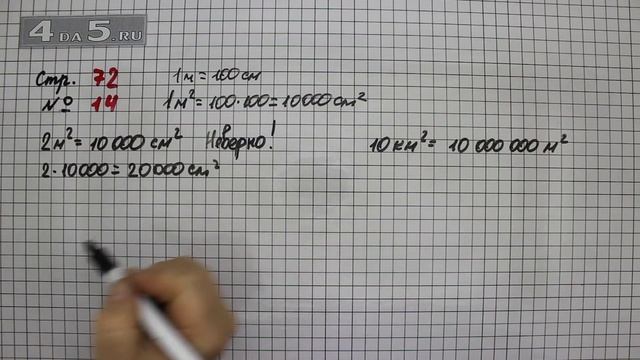 4 DA 5.RU
Стр. 72
№ 14
1 м = 100 см
1 м² = 100·100 = 10000 см²
2 м² = 10 000 см² Неверно!
2·10000 = 20000 см²
10 км² = 10 000 000 м²